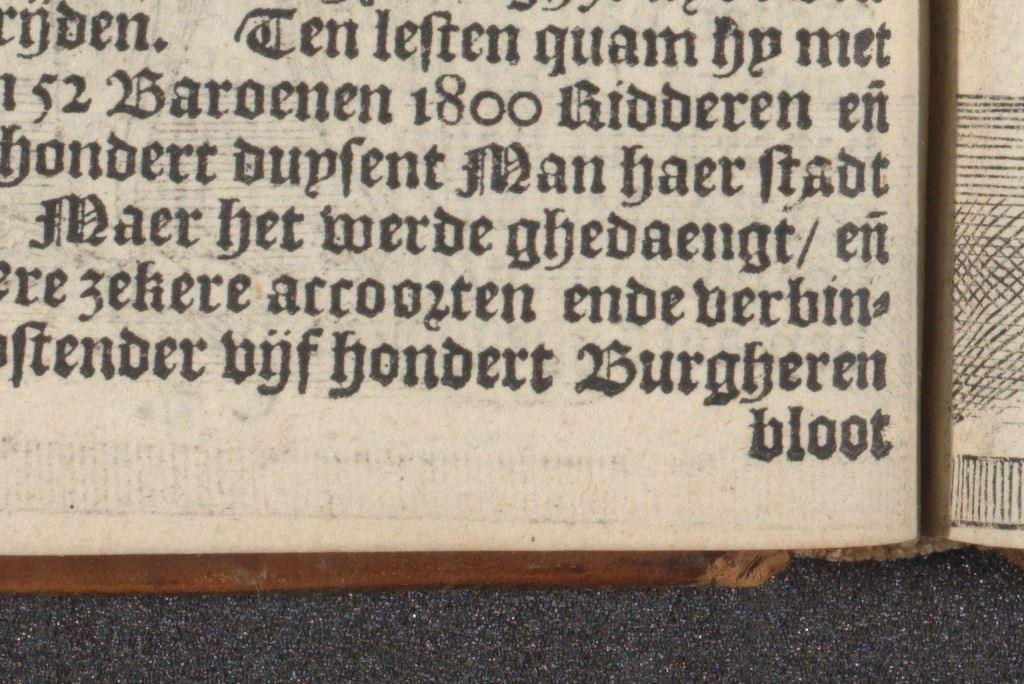 rijden. Ten lesten quam hy met
52 Baroenen 1800 Ridderen eñ
hondert duysent Man haer stadt
Maer het werde ghedaengt/ eñ
ere zekere accoorten ende verbin⸗
ostender vijf hondert Burgheren
bloot